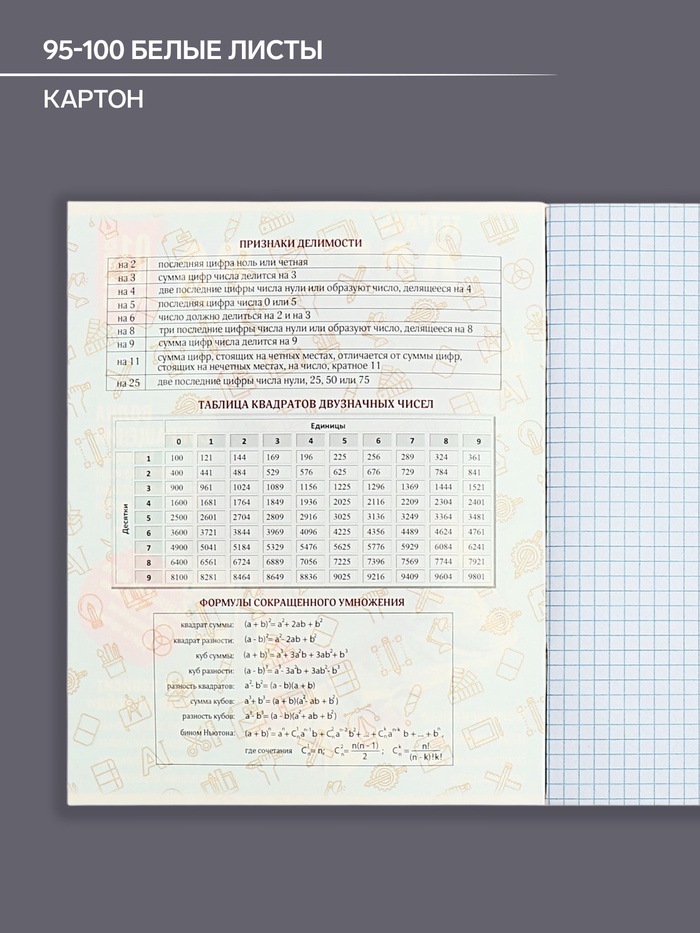 95-100 БЕЛЫЕ ЛИСТЫ
КАРТОН
ПРИЗНАКИ ДЕЛИМОСТИ
на 2 последняя цифра ноль или четная
на 3 сумма цифр числа делится на 3
на 4 две последние цифры числа нули или образуют число, делящееся на 4
на 5 последняя цифра числа 0 или 5
на 6 число должно делиться на 2 и на 3
на 8 три последние цифры числа нули или образуют число, делящееся на 8
на 9 сумма цифр числа делится на 9
на 11 сумма цифр, стоящих на четных местах, отличается от суммы цифр,
стоящих на нечетных местах, на число, кратное 11
на 25 две последние цифры числа нули, 25, 50 или 75
ТАБЛИЦА КВАДРАТОВ ДВУЗНАЧНЫХ ЧИСЕЛ
Единицы
0 1 2 3 4 5 6 7 8 9
Десятки
1 100 121 144 169 196 225 256 289 324 361
2 400 441 484 529 576 625 676 729 784 841
3 900 961 1024 1089 1156 1225 1296 1369 1444 1521
4 1600 1681 1764 1849 1936 2025 2116 2209 2304 2401
5 2500 2601 2704 2809 2916 3025 3136 3249 3364 3481
6 3600 3721 3844 3969 4096 4225 4356 4489 4624 4761
7 4900 5041 5184 5329 5476 5625 5776 5929 6084 6241
8 6400 6561 6724 6889 7056 7225 7396 7569 7744 7921
9 8100 8281 8464 8649 8836 9025 9216 9409 9604 9801
ФОРМУЛЫ СОКРАЩЕННОГО УМНОЖЕНИЯ
квадрат суммы: (a + b)²= a²+ 2ab + b²
квадрат разности: (a - b)²= a²- 2ab + b²
куб суммы: (a + b)³= a³+ 3a²b + 3ab²+ b³
куб разности: (a - b)³= a³- 3a²b + 3ab²- b³
разность квадратов: a²- b²= (a - b)(a + b)
сумма кубов: a³+ b³= (a + b)(a²- ab + b²)
разность кубов: a³- b³= (a - b)(a²+ ab + b²)
бином Ньютона: (a + b)ⁿ= aⁿ+ C¹ₙaⁿ⁻¹b + C²ₙaⁿ⁻²b²+ ... + Cᵏₙaⁿ⁻ᵏbᵏ + ... + bⁿ,
где сочетания C¹ₙ= n; C²ₙ= n(n - 1)/2 ; Cᵏₙ= n!/(n - k)!k!